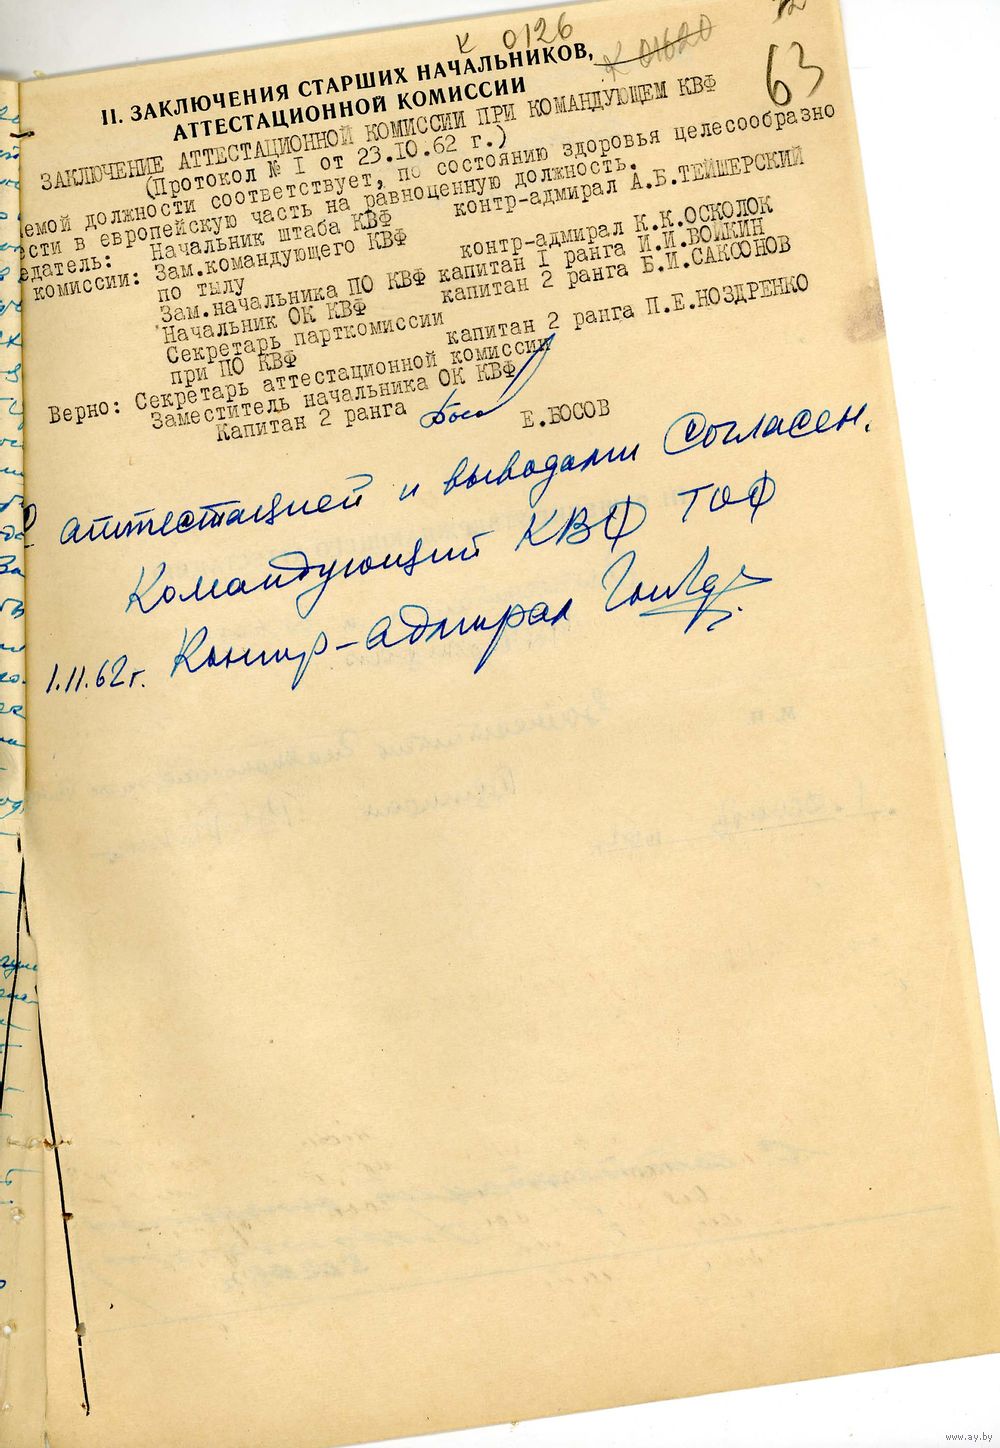 К 0126
К 01620
63
II. ЗАКЛЮЧЕНИЯ СТАРШИХ НАЧАЛЬНИКОВ,
АТТЕСТАЦИОННОЙ КОМИССИИ
ЗАКЛЮЧЕНИЕ АТТЕСТАЦИОННОЙ КОМИССИИ ПРИ КОМАНДУЮЩЕМ КВФ
(Протокол № I от 23.IO.62 г.)
емой должности соответствует, по состоянию здоровья целесообразно
ести в европейскую часть на равноценную должность.
едатель: Начальник штаба КВФ контр-адмирал А.Б.ТЕЙШЕРСКИЙ
комиссии: Зам.командующего КВФ
по тылу контр-адмирал К.К.ОСКОЛОК
Зам.начальника ПО КВФ капитан I ранга И.И.ВОЙКИН
Начальник ОК КВФ капитан 2 ранга Б.И.САКСОНОВ
Секретарь парткомиссии
при ПО КВФ капитан 2 ранга П.Е.НОЗДРЕНКО
Верно: Секретарь аттестационной комиссии
Заместитель начальника ОК КВФ
Капитан 2 ранга Е.БОСОВ
аттестацией и выводами согласен.
Командующий КВФ ТОФ
Контр-адмирал
1.11.62г.
www.ay.by